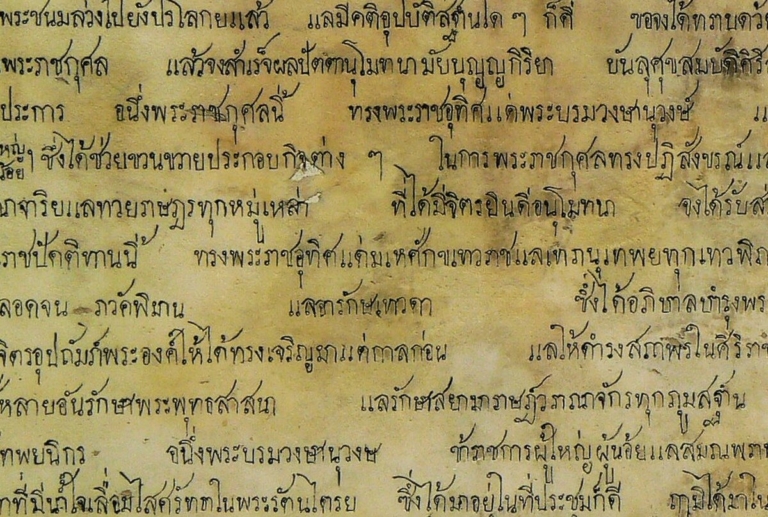 พระชนมล่วงไปยังปรโลกยแล้ว แลมีคติอุปบัติสฐานใด ๆ ก็ดี ขอจงได้ทราบด้วย
พระราชกุศล แล้วจงสำเร็จผลปัตตานุโมทนามัยบุญญกิริยา บันลุศุขสมบัติศิริ
ประการ อนึ่งพระราชกุศลนี้ ทรงพระราชอุทิศแด่พระบรมวงษานุวงษ์ แ
ๆ ซึ่งได้ช่วยขวนขวายประกอบกิจต่าง ๆ ในการพระราชกุศลทรงปฏิสังขรณ์แล
ภาจาริยแลทวยราษฎรทุกหมู่เหล่า ที่ได้มีจิตรยินดีอนุโมทนา จงได้รับส่
ราชปัตติทานนี้ ทรงพระราชอุทิศแด่มเหศักขเทวราชแลเทพานุเทพยทุกเทวพิภ
ลอดจน ภวัคพิมาน แลอารักษเทวดา ซึ่งได้อภิบาลบำรุงพร
จิตรอุปถัมภ์พระองค์ให้ได้ทรงเจริญมาแต่กาลก่อน แลให้ดำรงสภาพรในศิริราช
หลายอันรักษาพระพุทธสาสนา แลรักษาสยามราษฎ์วราณาจักรทุกภูมสฐาน
เทพยนิกร อนึ่งพระบรมวงษานุวงษ ข้าราชการผู้ใหญ่ผู้น้อยแลสมณพราห
ที่มีน้ำใจเลื่อมใสศรัทาในพระรัตนไตรย ซึ่งได้มาอยู่ในที่ประชุมก็ดี ฤามิได้มาใน